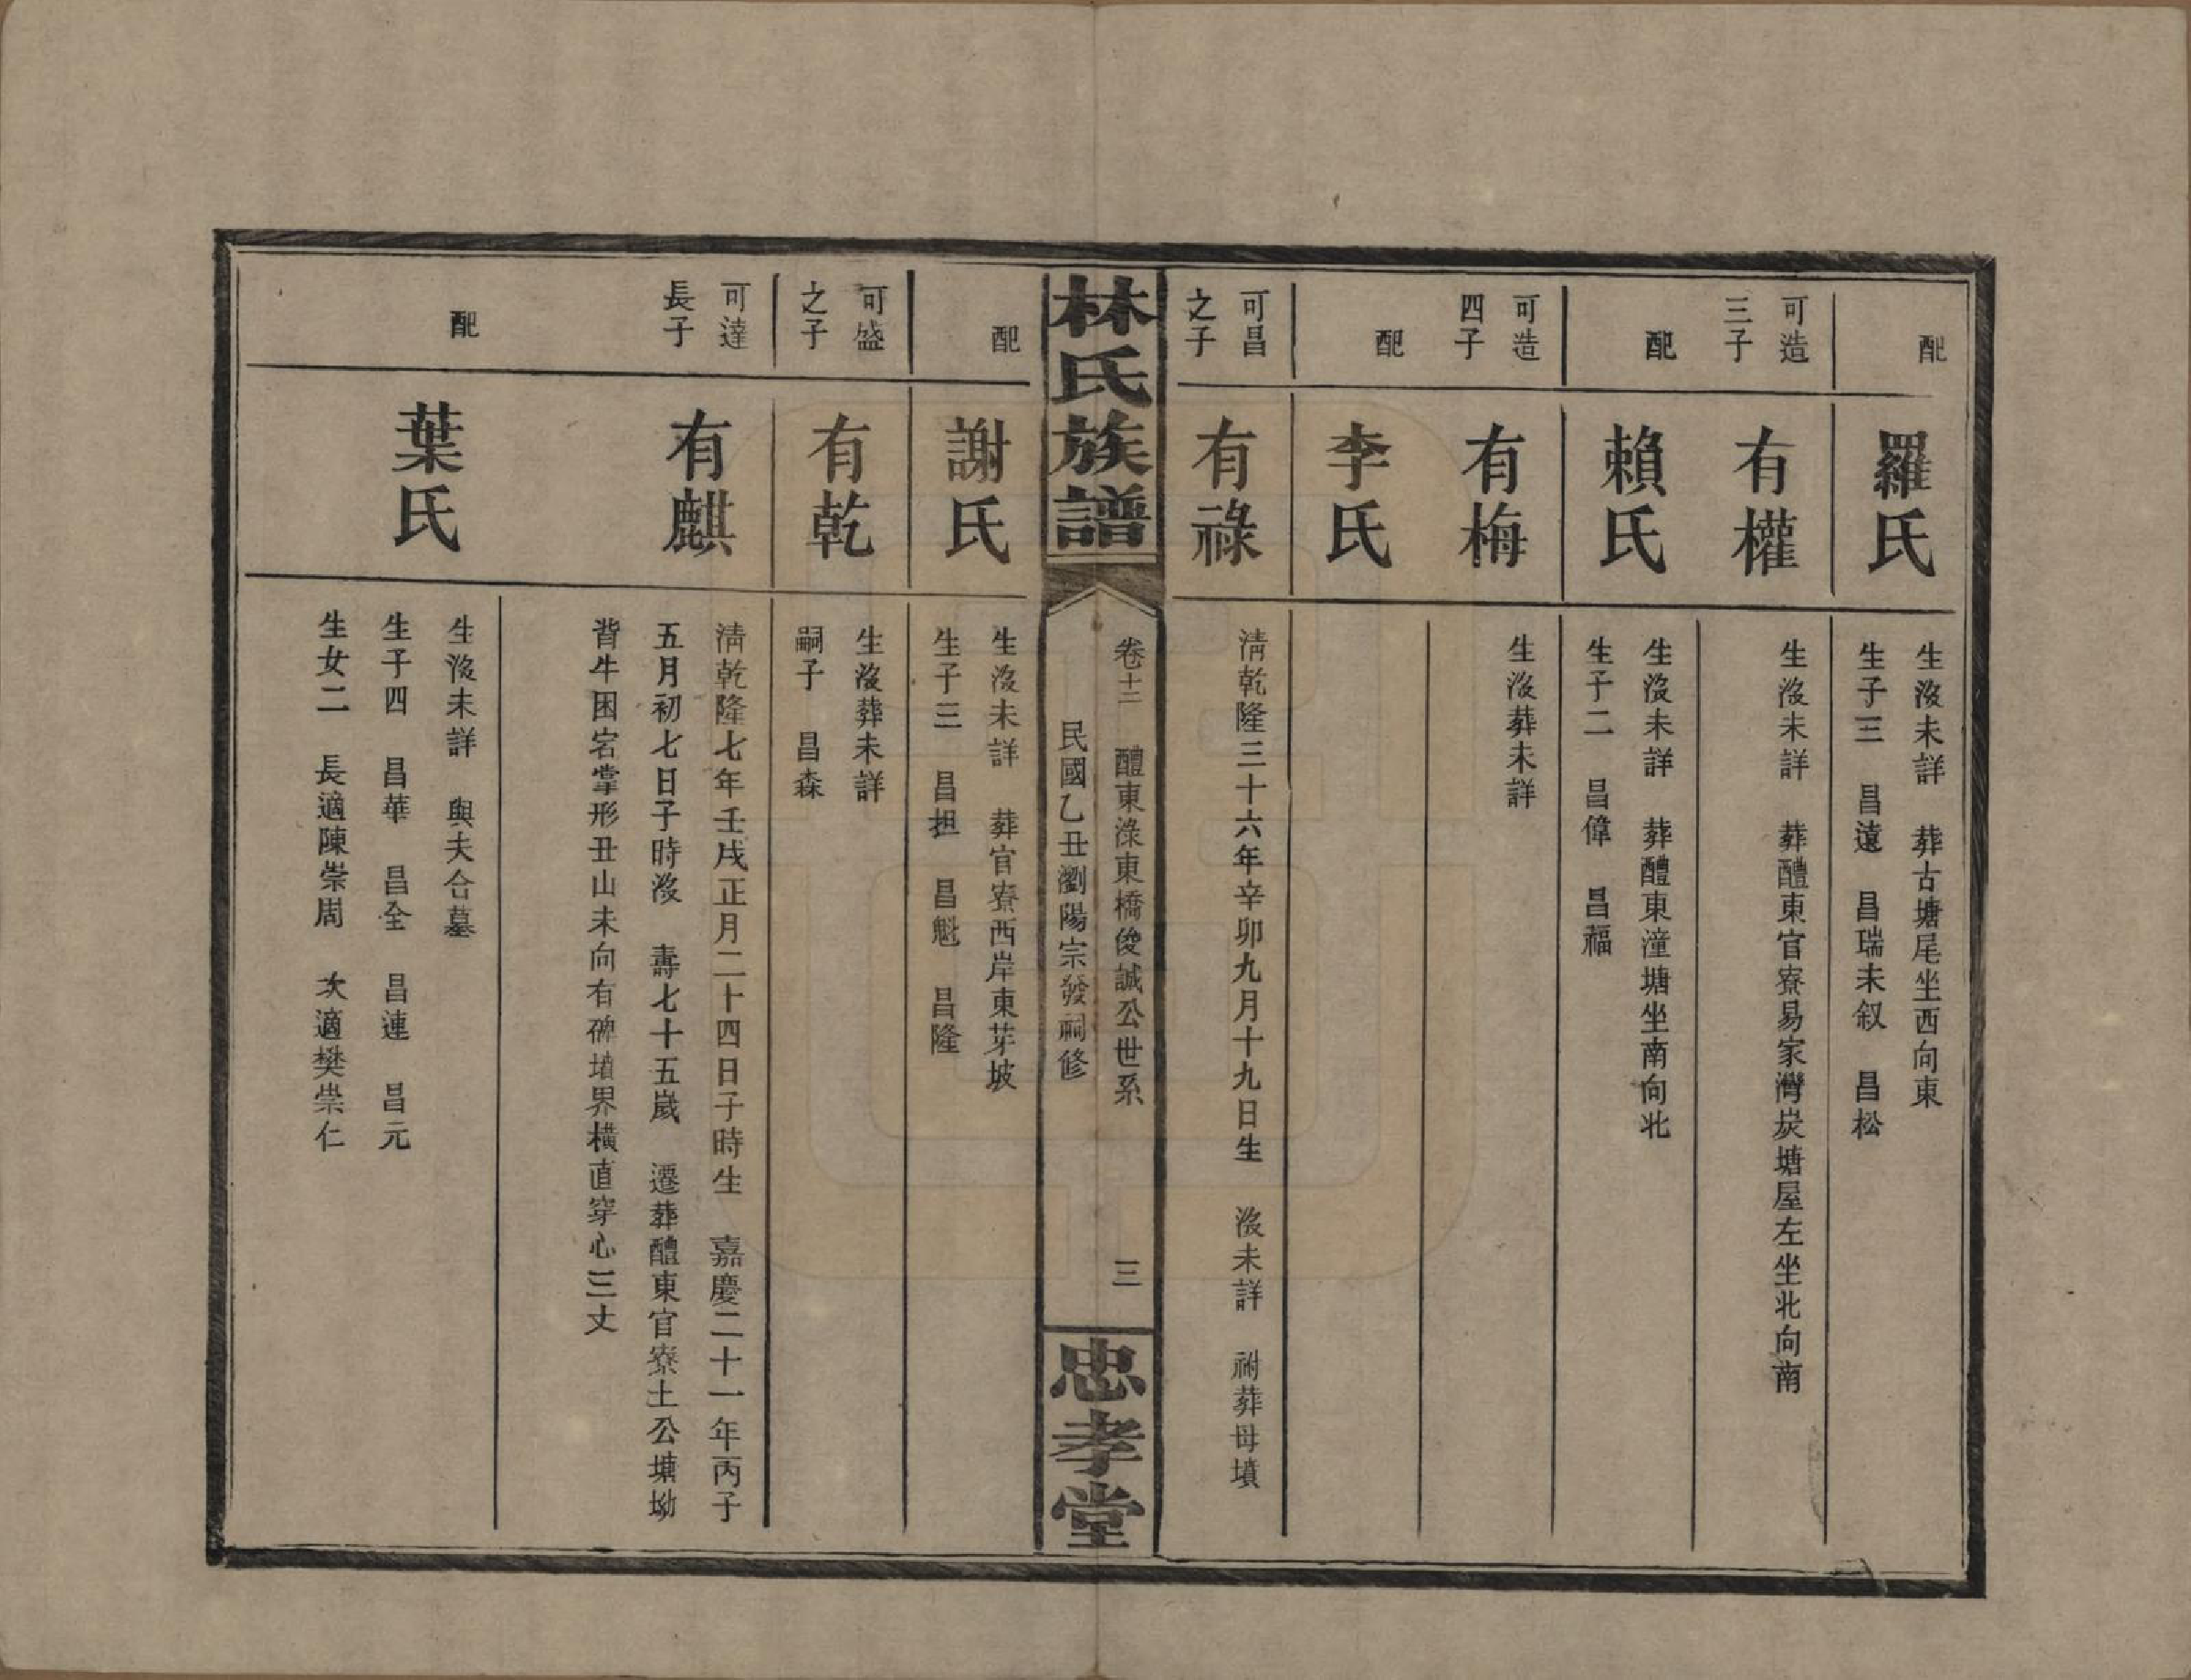 配
羅氏
生沒未詳　葬古塘尾坐西向東
生子三　昌遠　昌瑞未叙　昌松
可造
三子
有權
生沒未詳　葬醴東官寮易家灣炭塘屋左坐北向南
配
賴氏
生沒未詳　葬醴東潼塘坐南向北
生子二　昌偉　昌福
可造
四子
有梅
生沒葬未詳
配
李氏
可昌
之子
有祿
淸乾隆三十六年辛卯九月十九日生　沒未詳　祔葬母墳
林氏族譜
卷十二　醴東淥東橋俊誠公世系
三
民國乙丑瀏陽宗發祠修
忠孝堂
配
謝氏
生沒未詳　葬官寮西岸東芽坡
生子三　昌担　昌魁　昌隆
可盛
之子
有乾
生沒葬未詳
嗣子　昌森
可達
長子
有麒
淸乾隆七年壬戌正月二十四日子時生　嘉慶二十一年丙子
五月初七日子時沒　壽七十五歲　遷葬醴東官寮土公塘坳
背牛困宕掌形丑山未向有碑墳界橫直穿心三丈
配
葉氏
生沒未詳　與夫合墓
生子四　昌華　昌全　昌連　昌元
生女二　長適陳崇周　次適樊崇仁